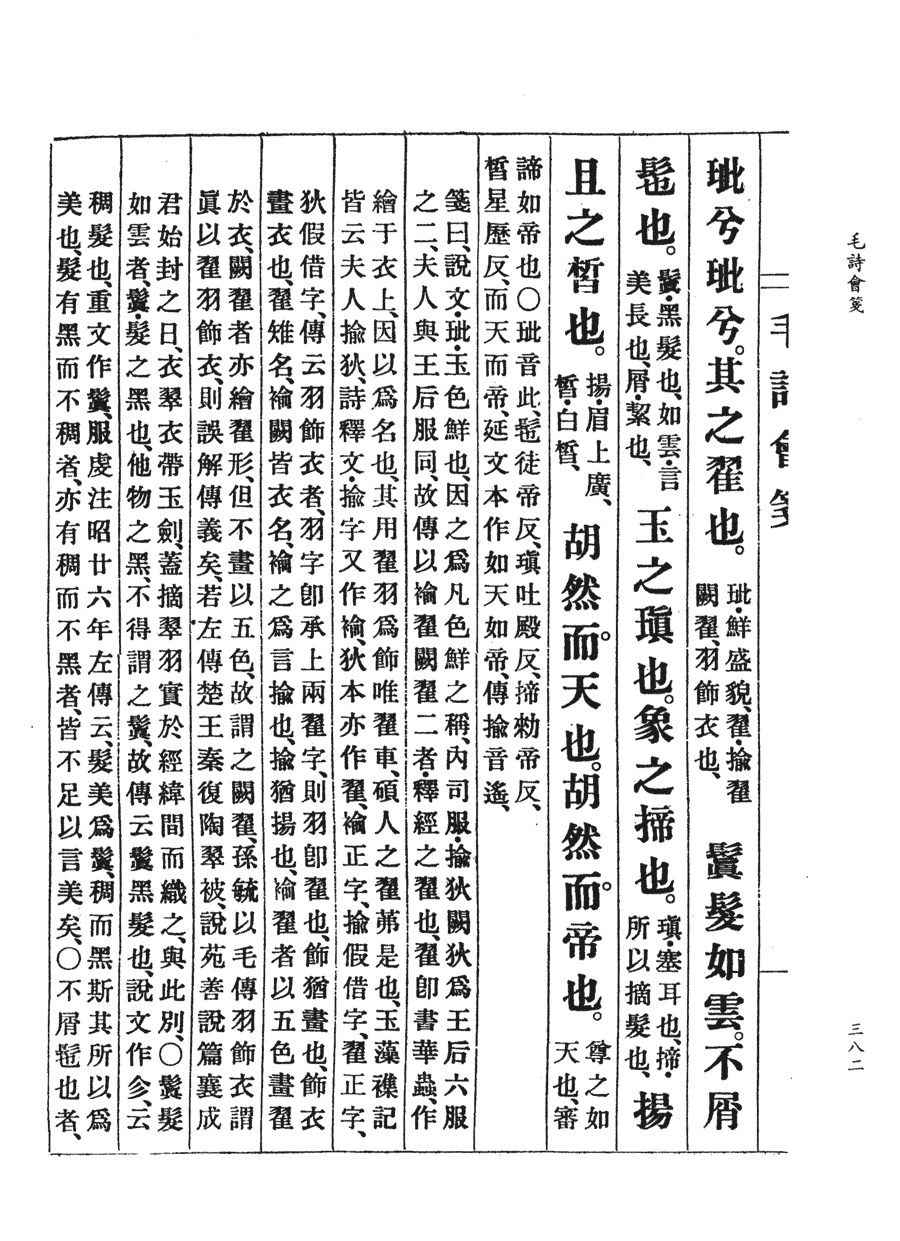 毛詩會箋
三八二
毛詩會箋
玼兮玼兮。其之翟也。玼・鮮盛貌、翟・揄翟闕翟、羽飾衣也、鬒髮如雲。不屑
髢也。鬒・黑髮也、如雲・言美長也、屑・絜也、玉之瑱也。象之揥也。瑱・塞耳也、揥・所以摘髮也、揚
且之皙也。揚・眉上廣、皙・白皙、胡然而。天也。胡然而。帝也。尊之如天也、審
諦如帝也〇玼音此、髢徒帝反、瑱吐殿反、揥勑帝反、
皙星歷反、而天而帝、延文本作如天如帝、傳揄音遙、
箋曰、說文・玼・玉色鮮也、因之爲凡色鮮之稱、內司服・揄狄闕狄爲王后六服
之二、夫人與王后服同、故傳以褕翟闕翟二者・釋經之翟也、翟卽書華蟲、作
繪于衣上、因以爲名也、其用翟羽爲飾唯翟車、碩人之翟茀是也、玉藻襍記
皆云夫人揄狄、詩釋文・揄字又作褕、狄本亦作翟、褕正字、揄假借字、翟正字、
狄假借字、傳云羽飾衣者、羽字卽承上兩翟字、則羽卽翟也、飾猶畫也、飾衣
畫衣也、翟雉名、褕闕皆衣名、褕之爲言揄也、揄猶揚也、褕翟者以五色畫翟
於衣、闕翟者亦繪翟形、但不畫以五色、故謂之闕翟、孫毓以毛傳羽飾衣謂
眞以翟羽飾衣、則誤解傳義矣、若左傳楚王秦復陶翠被、說苑善說篇襄成
君始封之日、衣翠衣帶玉劍、蓋摘翠羽實於經緯間而織之、與此別、〇鬒髮
如雲者、鬒・髮之黑也、他物之黑、不得謂之鬒、故傳云鬒黑髮也、說文作㐱、云
稠髮也、重文作鬒、服虔注昭廿六年左傳云、髮美爲鬒、稠而黑斯其所以爲
美也、髮有黑而不稠者、亦有稠而不黑者、皆不足以言美矣、〇不屑髢也者、